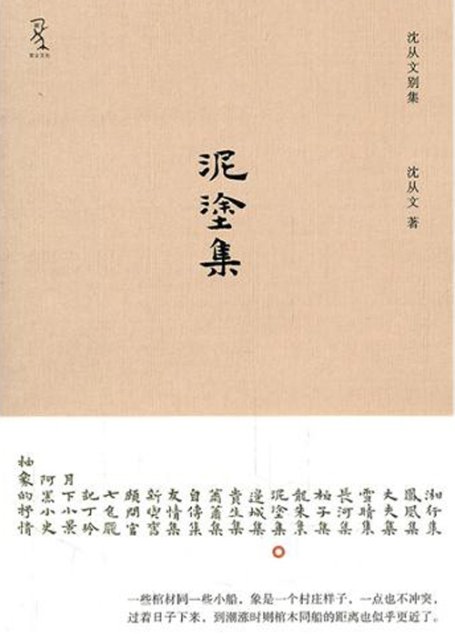 沈从文别集
沈从文 著
泥塗集
湘行集
鳳凰集
丈夫集
雪晴集
長河集
柏子集
龍朱集
泥塗集
邊城集
貴生集
蕭蕭集
自傳集
友情集
新與舊
顧問官
七色魘
記丁玲
月下小景
阿黑小史
抽象的抒情
一些棺材同一些小船，象是一个村庄样子，一点也不冲突，
过着日子下来，到潮涨时则棺木同船的距离也似乎更近了。